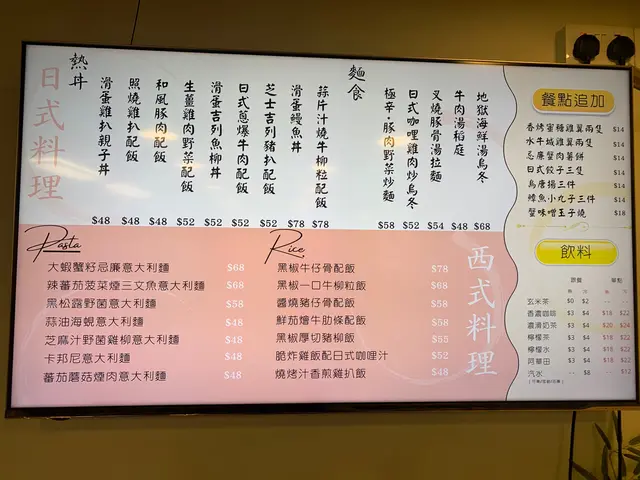 日式料理
熱丼
滑蛋雞扒親子丼 $48
照燒雞扒配飯 $48
和風豚肉配飯 $48
生薑雞肉野菜配飯 $52
滑蛋吉列魚柳丼 $52
日式蔥爆牛肉配飯 $52
芝士吉列豬扒配飯 $52
滑蛋鰻魚丼 $78
蒜片汁燒牛柳粒配飯 $78
麵食
極辛·豚肉野菜炒麵 $58
日式咖哩雞肉炒烏冬 $52
叉燒豚骨湯拉麵 $54
牛肉湯稻庭 $48
地獄海鮮湯烏冬 $68
Pasta
大蝦蟹籽忌廉意大利麵 $68
辣蕃茄菠菜煙三文魚意大利麵 $68
黑松露野菌意大利麵 $58
蒜油海蜆意大利麵 $48
芝麻汁野菌雞柳意大利麵 $48
卡邦尼意大利麵 $48
蕃茄蘑菇煙肉意大利麵 $48
Rice
黑椒牛仔骨配飯 $78
黑椒一口牛柳粒飯 $68
醬燒豬仔骨配飯 $58
鮮茄燴牛肋條配飯 $58
黑椒厚切豬柳飯 $55
脆炸雞飯配日式咖哩汁 $52
燒烤汁香煎雞扒飯 $48
西式料理
餐點追加
香烤蜜糖雞翼兩隻 $14
水牛城雞翼兩隻 $14
忌廉蟹肉薯餅 $14
日式餃子三隻 $14
烏唐揚三件 $14
章魚小丸子三件 $14
蟹味噌玉子燒 $18
飲料
跟餐 單點
熱 凍 熱 凍
玄米茶 $0 $2 -- --
香濃咖啡 $3 $4 $18 $22
濃滑奶茶 $3 $4 $20 $24
檸檬茶 $3 $4 $18 $22
檸檬水 $3 $4 $18 $22
阿華田 $3 $4 $18 $22
汽水 -- $8 -- $12